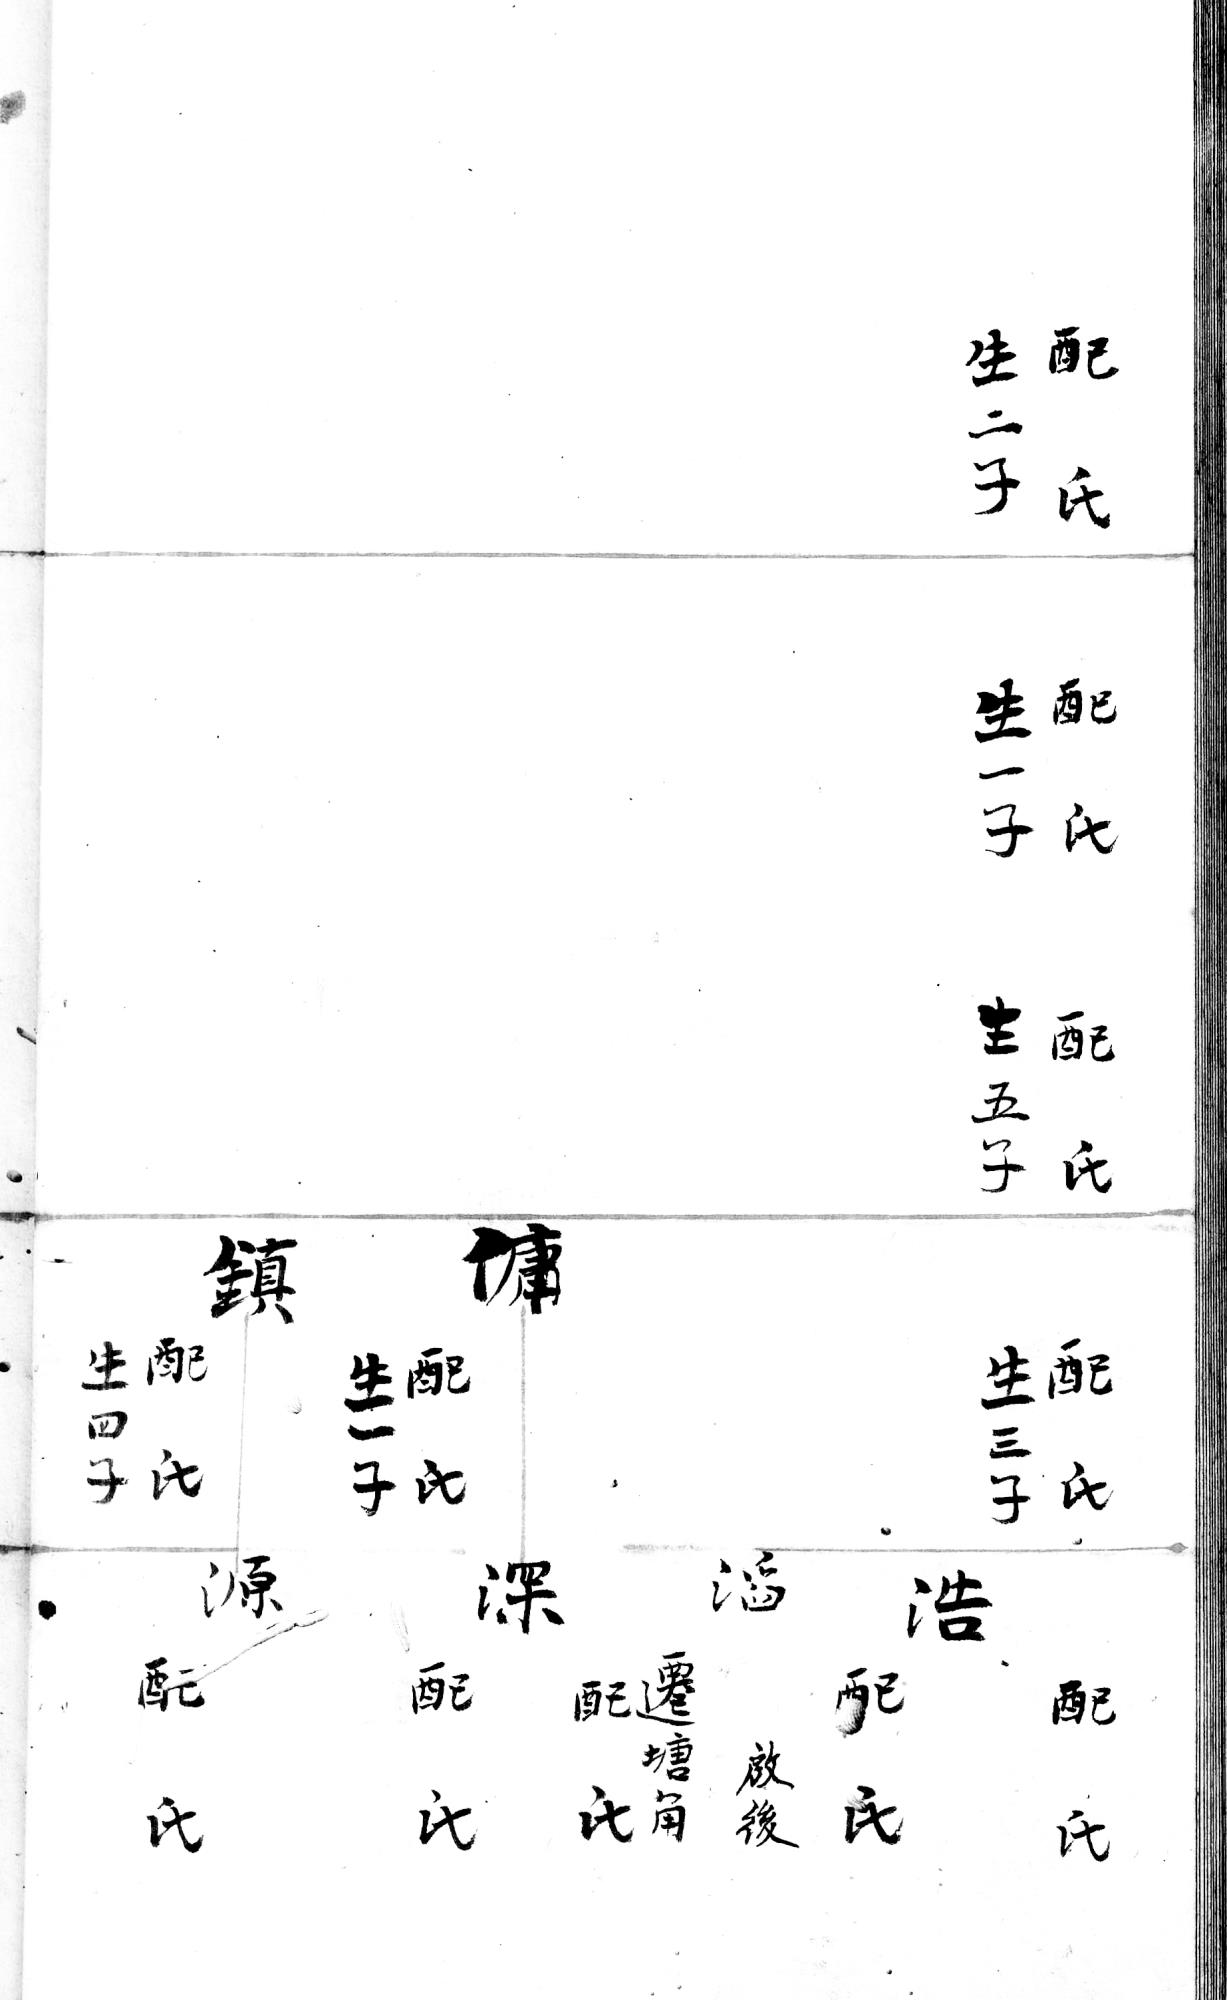 配　氏
生二子
配　氏
生一子
配　氏
生五子
配　氏
生三子
慵
配　氏
生一子
鎮
配　氏
生四子
配　氏
浩
配　氏
啟後
滔
遷塘角
配　氏
深
配　氏
源
配　氏